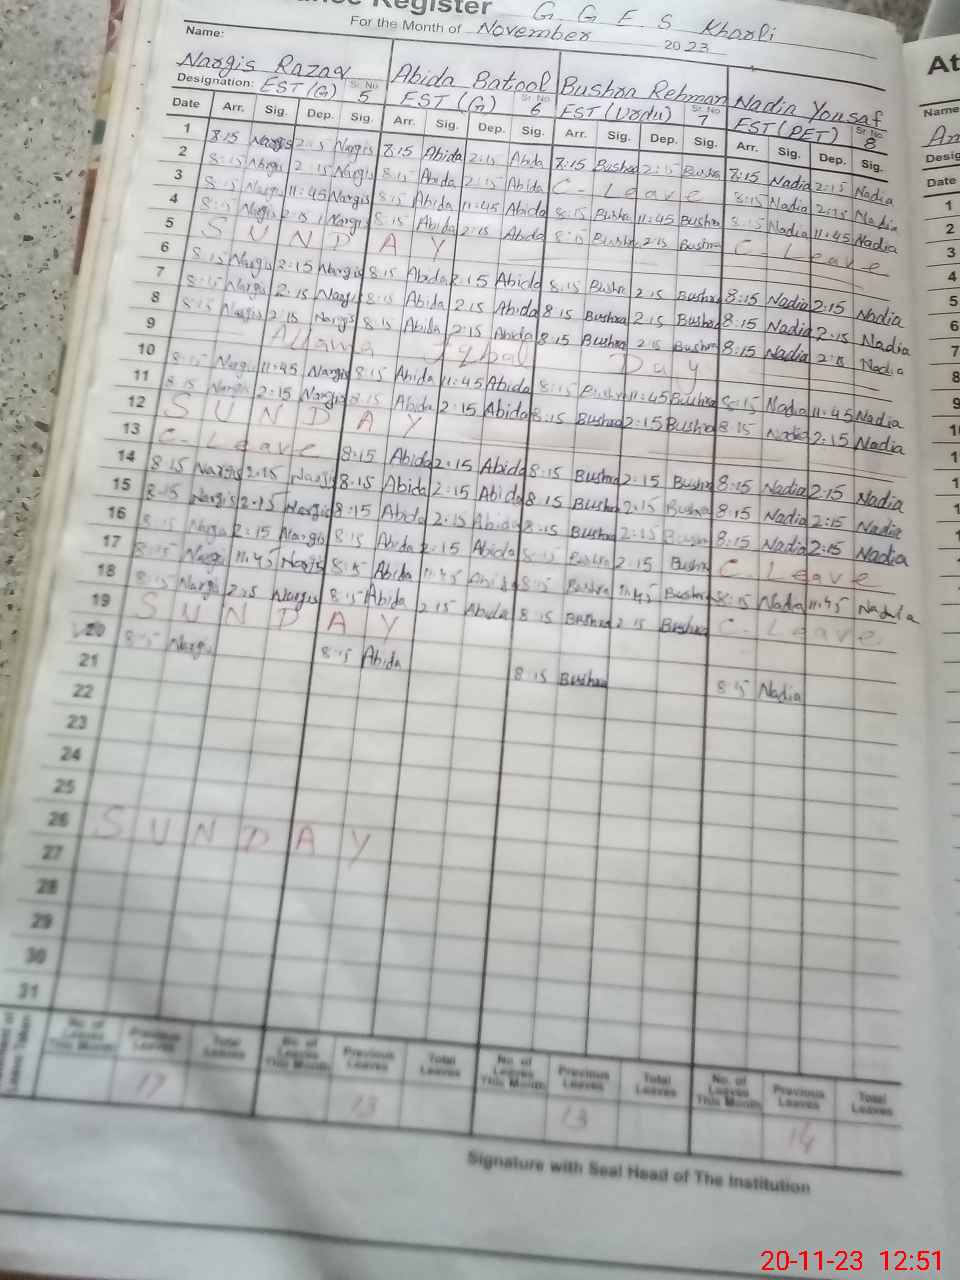 Register G G E S Kharli
For the Month of November 2023
Name: Nargis Razaq Abida Batool Bushra Rehman Nadia Yousaf
Designation: EST (G) Sr. No. 5 EST (G) Sr. No. 6 EST (Urdu) Sr. No. 7 EST (PET) Sr. No. 8
Date Arr. Sig. Dep. Sig. Arr. Sig. Dep. Sig. Arr. Sig. Dep. Sig. Arr. Sig. Dep. Sig.
1 8:15 Nargis 2:15 Nargis 8:15 Abida 2:15 Abida 8:15 Bushra 2:15 Bushra 8:15 Nadia 2:15 Nadia
2 8:15 Nargis 2:15 Nargis 8:15 Abida 2:15 Abida C - Leave 8:15 Nadia 2:15 Nadia
3 8:15 Nargis 11:45 Nargis 8:15 Abida 11:45 Abida 8:15 Bushra 11:45 Bushra 8:15 Nadia 11:45 Nadia
4 8:15 Nargis 2:15 Nargis 8:15 Abida 2:15 Abida 8:15 Bushra 2:15 Bushra C - Leave
5 S U N D A Y
6 8:15 Nargis 2:15 Nargis 8:15 Abida 2:15 Abida 8:15 Bushra 2:15 Bushra 8:15 Nadia 2:15 Nadia
7 8:15 Nargis 2:15 Nargis 8:15 Abida 2:15 Abida 8:15 Bushra 2:15 Bushra 8:15 Nadia 2:15 Nadia
8 8:15 Nargis 2:15 Nargis 8:15 Abida 2:15 Abida 8:15 Bushra 2:15 Bushra 8:15 Nadia 2:15 Nadia
9 Allama Iqbal Day
10 8:15 Nargis 11:45 Nargis 8:15 Abida 11:45 Abida 8:15 Bushra 11:45 Bushra 8:15 Nadia 11:45 Nadia
11 8:15 Nargis 2:15 Nargis 8:15 Abida 2:15 Abida 8:15 Bushra 2:15 Bushra 8:15 Nadia 2:15 Nadia
12 S U N D A Y
13 C - Leave 8:15 Abida 2:15 Abida 8:15 Bushra 2:15 Bushra 8:15 Nadia 2:15 Nadia
14 8:15 Nargis 2:15 Nargis 8:15 Abida 2:15 Abida 8:15 Bushra 2:15 Bushra 8:15 Nadia 2:15 Nadia
15 8:15 Nargis 2:15 Nargis 8:15 Abida 2:15 Abida 8:15 Bushra 2:15 Bushra 8:15 Nadia 2:15 Nadia
16 8:15 Nargis 2:15 Nargis 8:15 Abida 2:15 Abida 8:15 Bushra 2:15 Bushra C. Leave
17 8:15 Nargis 11:45 Nargis 8:15 Abida 11:45 Abida 8:15 Bushra 11:45 Bushra 8:15 Nadia 11:45 Nadia
18 8:15 Nargis 2:15 Nargis 8:15 Abida 2:15 Abida 8:15 Bushra 2:15 Bushra C - Leave
19 S U N D A Y
20 8:15 Nargis 8:15 Abida 8:15 Bushra 8:15 Nadia
21
22
23
24
25
26 S U N D A Y
27
28
29
30
31
No. of Leaves This Month Previous Leaves Total Leaves No. of Leaves This Month Previous Leaves Total Leaves No. of Leaves This Month Previous Leaves Total Leaves No. of Leaves This Month Previous Leaves Total Leaves
17 13 13 14
Signature with Seal Head of The Institution
At
Name
Desig
Date
1
2
3
4
5
6
7
8
9
20-11-23 12:51